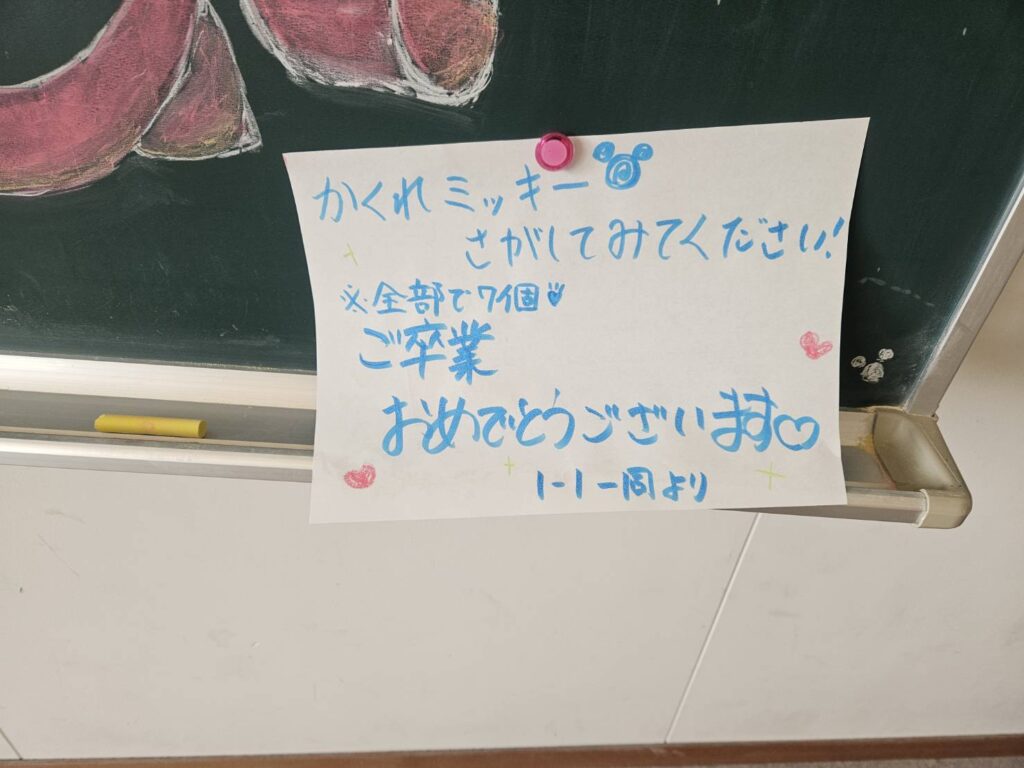 かくれミッキー
さがしてみてください!
※全部で7個♡
ご卒業
おめでとうございます♡
1-1一同より